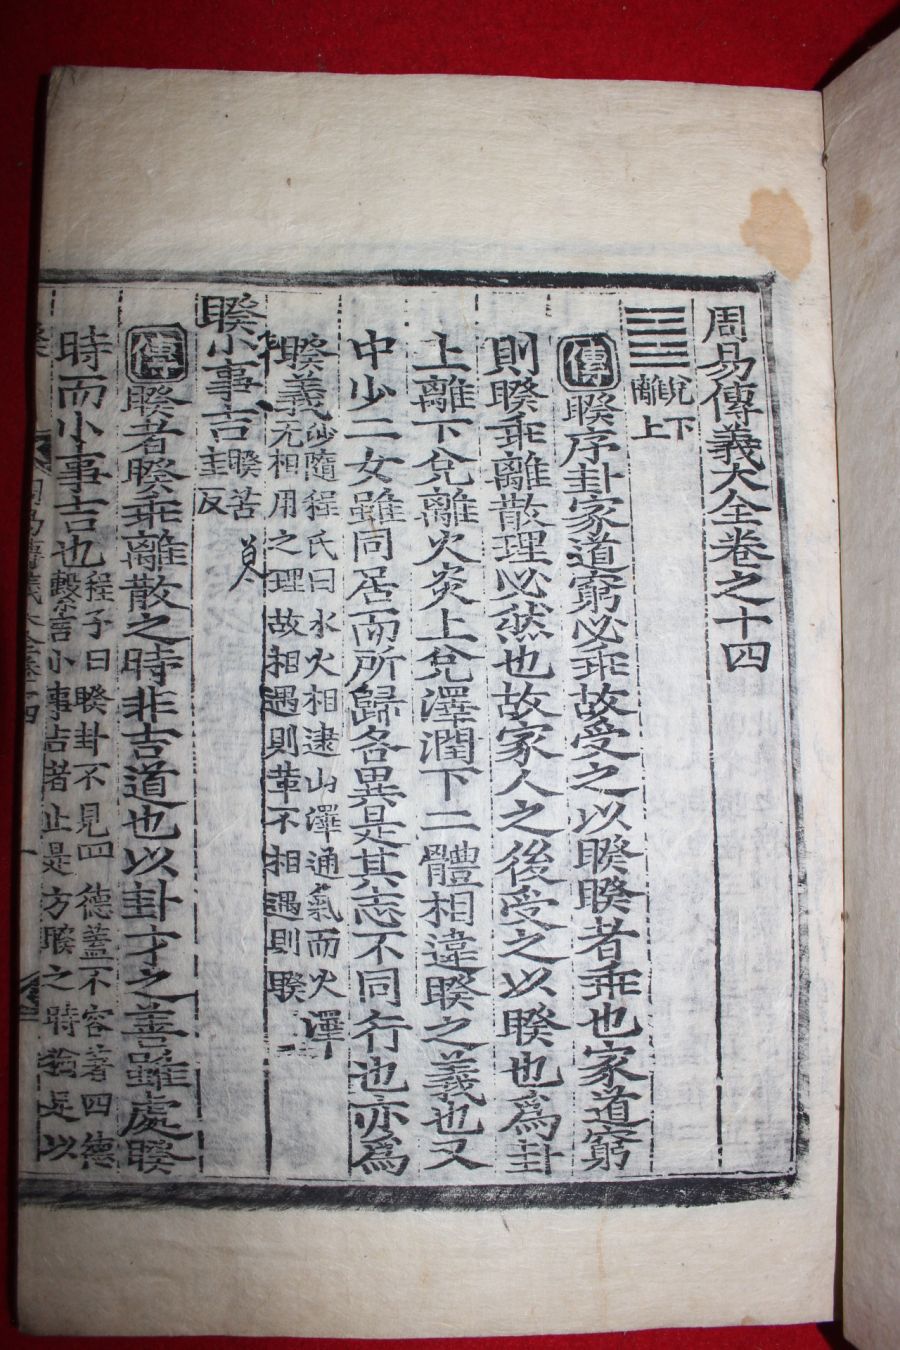 周易傳義大全卷之十四
兌下
離上
傳 睽序卦家道窮必乖故受之以睽睽者乖也家道窮
則睽乖離散理必然也故家人之後受之以睽也爲卦
上離下兌離火炎上兌澤潤下二體相違睽之義也又
中少二女雖同居而所歸各異是其志不同行也亦爲
睽義
沙隨程氏曰水火相逮山澤通氣而火澤
无相用之理故相遇則革不相遇則睽
睽小事吉
睽苦
圭反
傳 睽者睽乖離散之時非吉道也以卦才之善雖處睽
時而小事吉也
程子曰睽卦不見四德蓋不容著四德
繫言小事吉者止是方睽之時猶足以